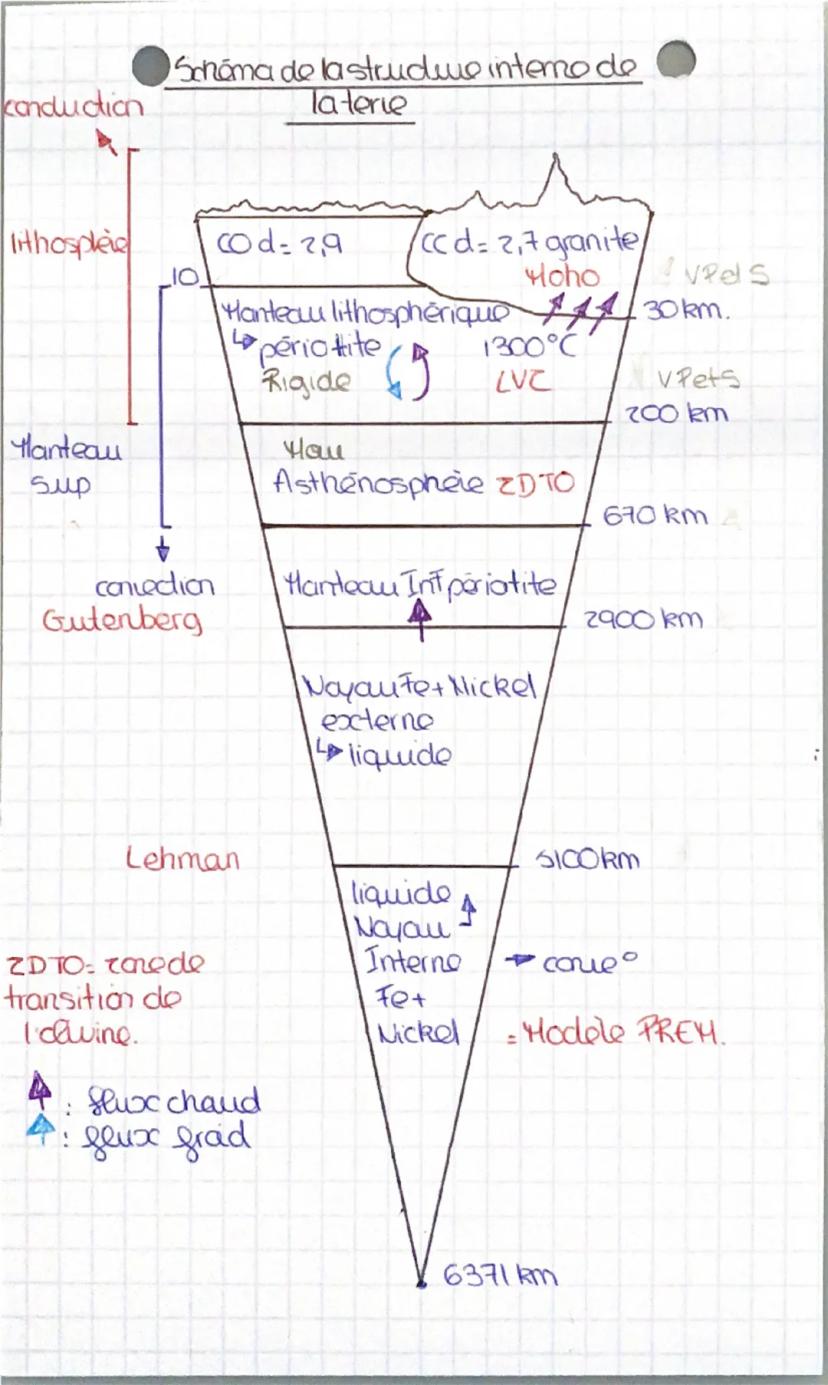 Schéma de la structure interne de
la terre
conduction
lithosphère
CO d = 2,9
CC d = 2,7 granite
Moho
VPetS
10
Manteau lithosphérique
30 km.
↳ périotite
1300°C
Rigide
LVZ
VPetS
200 km
Manteau
sup
Mou
Asthénosphère ZDTO
670 km
convection
Manteau Inf périotite
Gutenberg
2900 km
Noyau Fe + Nickel
externe
↳ liquide
Lehman
5100 km
liquide
Noyau
Interne
Fe +
Nickel
→ conve°
= Modèle PREM.
ZDTO = zone de
transition de
l'olivine.
: flux chaud
: flux froid
6371 km